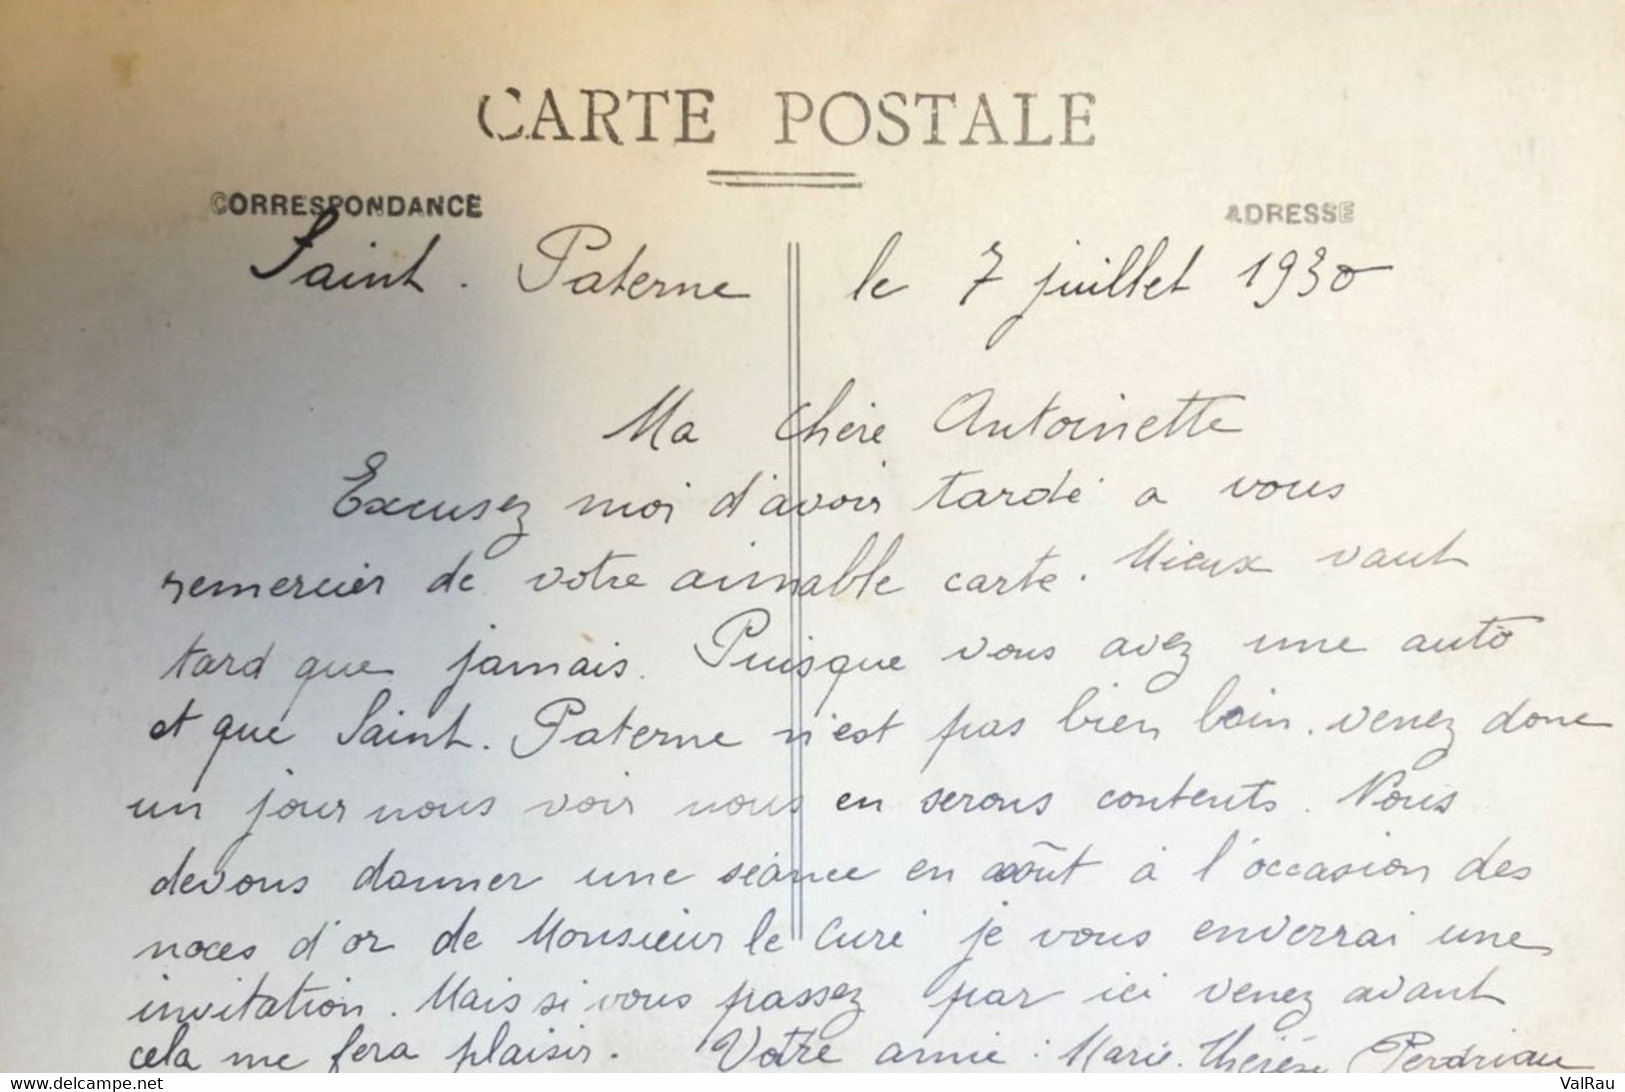 CARTE POSTALE
CORRESPONDANCE
ADRESSE
Saint. Paterne le 7 juillet 1930
Ma Chère Antoinette
Excusez moi d'avoir tardé a vous
remercier de votre aimable carte. Mieux vaut
tard que jamais. Puisque vous avez une auto
et que Saint. Paterne n'est pas bien loin. venez donc
un jour nous voir nous en serons contents. Nous
devons donner une séance en août à l'occasion des
noces d'or de Monsieur le Curé je vous enverrai une
invitation. Mais si vous passez par ici venez avant
cela me fera plaisir. Votre amie : Marie. Thérèse Perdriau
delcampe.net
ValRau